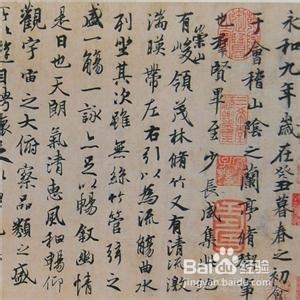 永和九年歲在癸丑暮春之初會
于會稽山陰之蘭亭脩稧事
也羣賢畢至少長咸集此
有崇山峻領茂林脩竹又有清流激
湍暎帶左右引以為流觴曲水
列坐其次雖無絲竹管弦之
盛一觴一詠亦足以暢叙幽情
是日也天朗氣清惠風和暢仰
觀宇宙之大俯察品類之盛
遊目騁懷
Bai百度经验